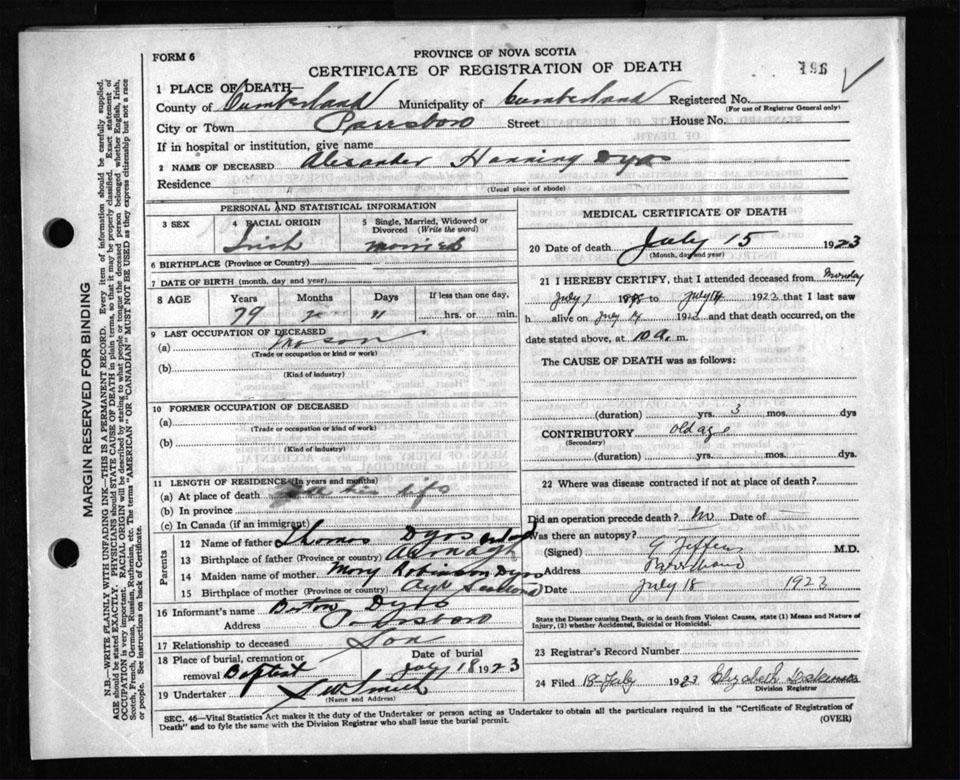 FORM 6
PROVINCE OF NOVA SCOTIA
CERTIFICATE OF REGISTRATION OF DEATH
196
1 PLACE OF DEATH
County of Cumberland Municipality of Cumberland Registered No.
(For use of Registrar General only)
City or Town Parrsboro Street House No.
If in hospital or institution, give name
2 NAME OF DECEASED Alexander Hanning Dyas
Residence "
(Usual place of abode)
PERSONAL AND STATISTICAL INFORMATION
3 SEX
4 RACIAL ORIGIN
Irish
5 Single, Married, Widowed or Divorced (Write the word)
Married
6 BIRTHPLACE (Province or Country)
7 DATE OF BIRTH (month, day and year)
8 AGE Years Months Days If less than one day,
79 2 11 hrs. or min.
9 LAST OCCUPATION OF DECEASED
(a) Mason
(Trade or occupation or kind or work)
(b)
(Kind of industry)
10 FORMER OCCUPATION OF DECEASED
(a)
(Trade or occupation or kind of work)
(b)
(Kind of industry)
11 LENGTH OF RESIDENCE (In years and months)
(a) At place of death all his life
(b) In province
(c) In Canada (if an immigrant)
Parents
12 Name of father Thomas Dyas
13 Birthplace of father (Province or country)
14 Maiden name of mother Mary Robinson Dyas
15 Birthplace of mother (Province or country) Ayr Scotland
16 Informant's name Dyas
Address Parrsboro
17 Relationship to deceased Son
18 Place of burial, cremation or
removal Baptist July 18 1923
19 Undertaker S W Smith
(Name and Address)
MEDICAL CERTIFICATE OF DEATH
20 Date of death July 15 1923
(Month, day and year)
21 I HEREBY CERTIFY, that I attended deceased from Monday
July 7 to July 14 1923 that I last saw
h alive on July 14 1923 and that death occurred, on the
date stated above, at 10 a. m.
The CAUSE OF DEATH was as follows:
(duration) yrs. 3 mos. dys
CONTRIBUTORY old age
(Secondary)
(duration) yrs. mos. dys
22 Where was disease contracted if not at place of death?
Did an operation precede death? No Date of
Was there an autopsy?
(Signed) M.D.
Address Parrsboro
Date July 18 1923
State the Disease causing Death, or in death from Violent Causes, state (1) Means and Nature of
Injury, (2) whether Accidental, Suicidal or Homicidal.
23 Registrar's Record Number
24 Filed 18 July 1923 Elizabeth
Division Registrar
SEC. 46—Vital Statistics Act makes it the duty of the Undertaker or person acting as Undertaker to obtain all the particulars required in the "Certificate of Registration of
Death" and to fyle the same with the Division Registrar who shall issue the burial permit.
(OVER)
MARGIN RESERVED FOR BINDING
N.B.—WRITE PLAINLY WITH UNFADING INK—THIS IS A PERMANENT RECORD. Every item of information should be carefully supplied.
AGE should be stated EXACTLY. PHYSICIANS should STATE CAUSE OF DEATH in plain terms, so that it may be properly classified. Exact statement of
OCCUPATION is very important. RACIAL ORIGIN will be described by stating to what people or tongue the deceased person belonged whether English, Irish,
Scotch, French, German, Russian, Ruthanian, etc. The terms "AMERICAN" OR "CANADIAN" MUST NOT BE USED as they express citizenship but not a race
or people. See instructions on back of Certificate.